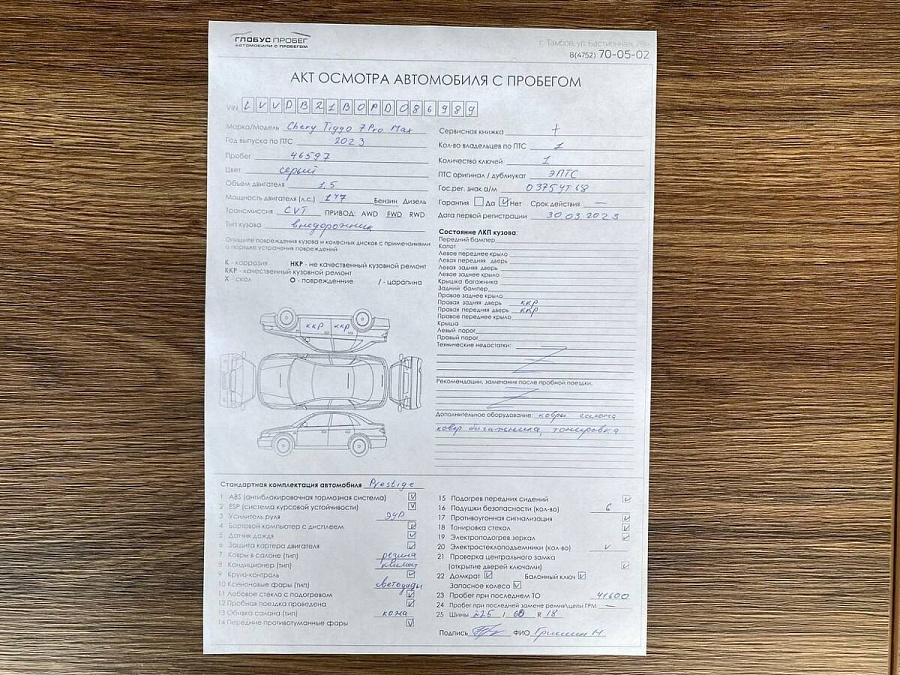 ГЛОБУС ПРОБЕГ
АВТОМОБИЛИ С ПРОБЕГОМ
г. Тамбов, ул. Бастионная
8(4752) 70-05-02
АКТ ОСМОТРА АВТОМОБИЛЯ С ПРОБЕГОМ
VIN LVVDB21B0PD086989
Марка/Модель Chery Tiggo 7 Pro Max
Год выпуска по ПТС 2023
Пробег 46597
Цвет серый
Объем двигателя 1,5
Мощность двигателя (л.с.) 147 Бензин Дизель
Трансмиссия CVT ПРИВОД: AWD FWD RWD
Тип кузова внедорожник
Опишите повреждения кузова и колесных дисков с примечаниями
о порядке устранения повреждений
К - коррозия НКР - не качественный кузовной ремонт
ККР - качественный кузовной ремонт
Х - скол О - повреждение / - царапина
ккр ккр
Сервисная книжка +
Кол-во владельцев по ПТС 1
Количество ключей 1
ПТС оригинал / дубликат ЭПТС
Гос.рег. знак а/м О375УТ68
Гарантия Да V Нет Срок действия —
Дата первой регистрации 30.03.2023
Состояние ЛКП кузова:
Передний бампер
Капот
Левое переднее крыло
Левая передняя дверь
Левая задняя дверь
Левое заднее крыло
Крышка багажника
Задний бампер
Правое заднее крыло
Правая задняя дверь ккр
Правая передняя дверь ккр
Правое переднее крыло
Крыша
Левый порог
Правый порог
Технические недостатки:
Рекомендации, замечания после пробной поездки,
Дополнительное оборудование: ковры салона
ковер багажника, тонировка
Стандартная комплектация автомобиля Prestige
1 ABS (антиблокировочная тормозная система) V
2 ESP (система курсовой устойчивости) V
3 Усилитель руля ЭУР
4 Бортовой компьютер с дисплеем V
5 Датчик дождя V
6 Защита картера двигателя V
7 Ковры в салоне (тип) резина
8 Кондиционер (тип) климат
9 Круиз-контроль V
10 Ксеноновые фары (тип) светодиоды
11 Лобовое стекло с подогревом V
12 Пробная поездка проведена V
13 Обивка салона (тип) кожа
14 Передние противотуманные фары V
15 Подогрев передних сидений V
16 Подушки безопасности (кол-во) 6
17 Противоугонная сигнализация V
18 Тонировка стекол V
19 Электроподогрев зеркал V
20 Электростеклоподъемники (кол-во)
21 Проверка центрального замка
(открытие дверей ключами) V
22 Домкрат V Балонный ключ V
Запасное колесо V
23 Пробег при последнем ТО 41600
24 Пробег при последней замене ремня/цепи ГРМ —
25 Шины 225 / 60 R 18
Подпись ФИО Гришин Н.